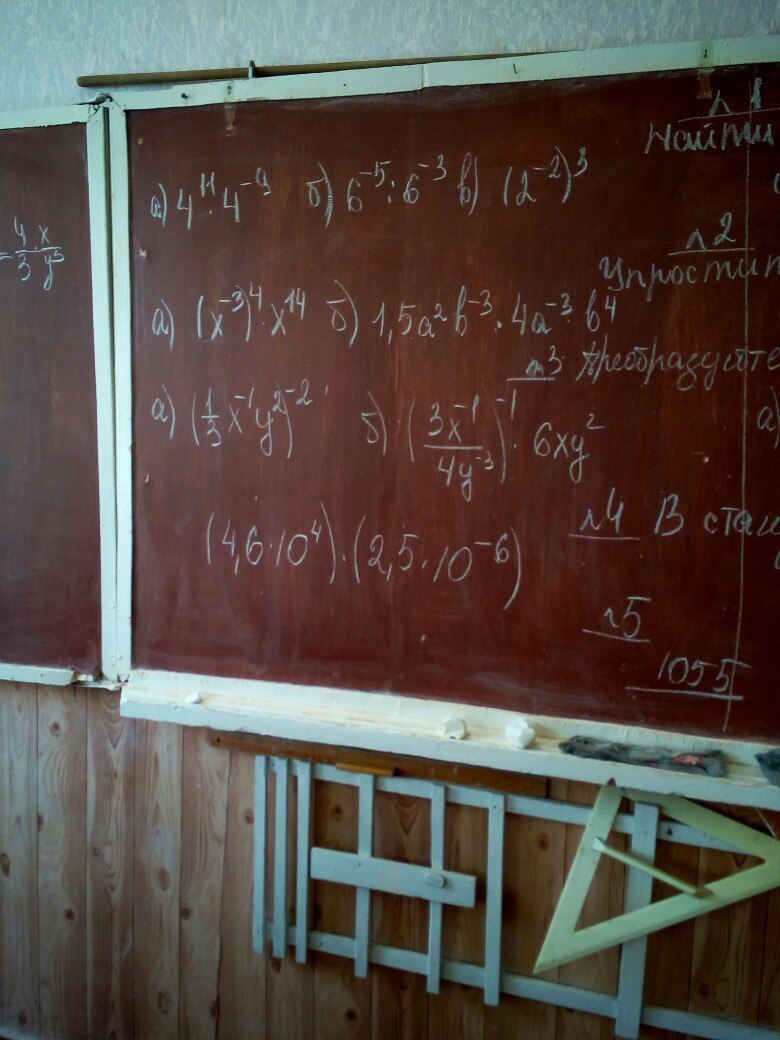 = 4/3 · x/y³
л 1
Найти
а) 4¹¹·4⁻⁹ б) 6⁻⁵:6⁻³ в) (2⁻²)³
л 2
Упростит
а) (x⁻³)⁴·x¹⁴ б) 1,5a²b⁻³·4a⁻³·b⁴
л3 Преобразуйте
а) (1/3 x⁻¹y²)⁻² б) (3x⁻¹/4y⁻³)⁻¹·6xy²
а)
л4 В стан
(4,6·10⁴)·(2,5·10⁻⁶)
л5
1055